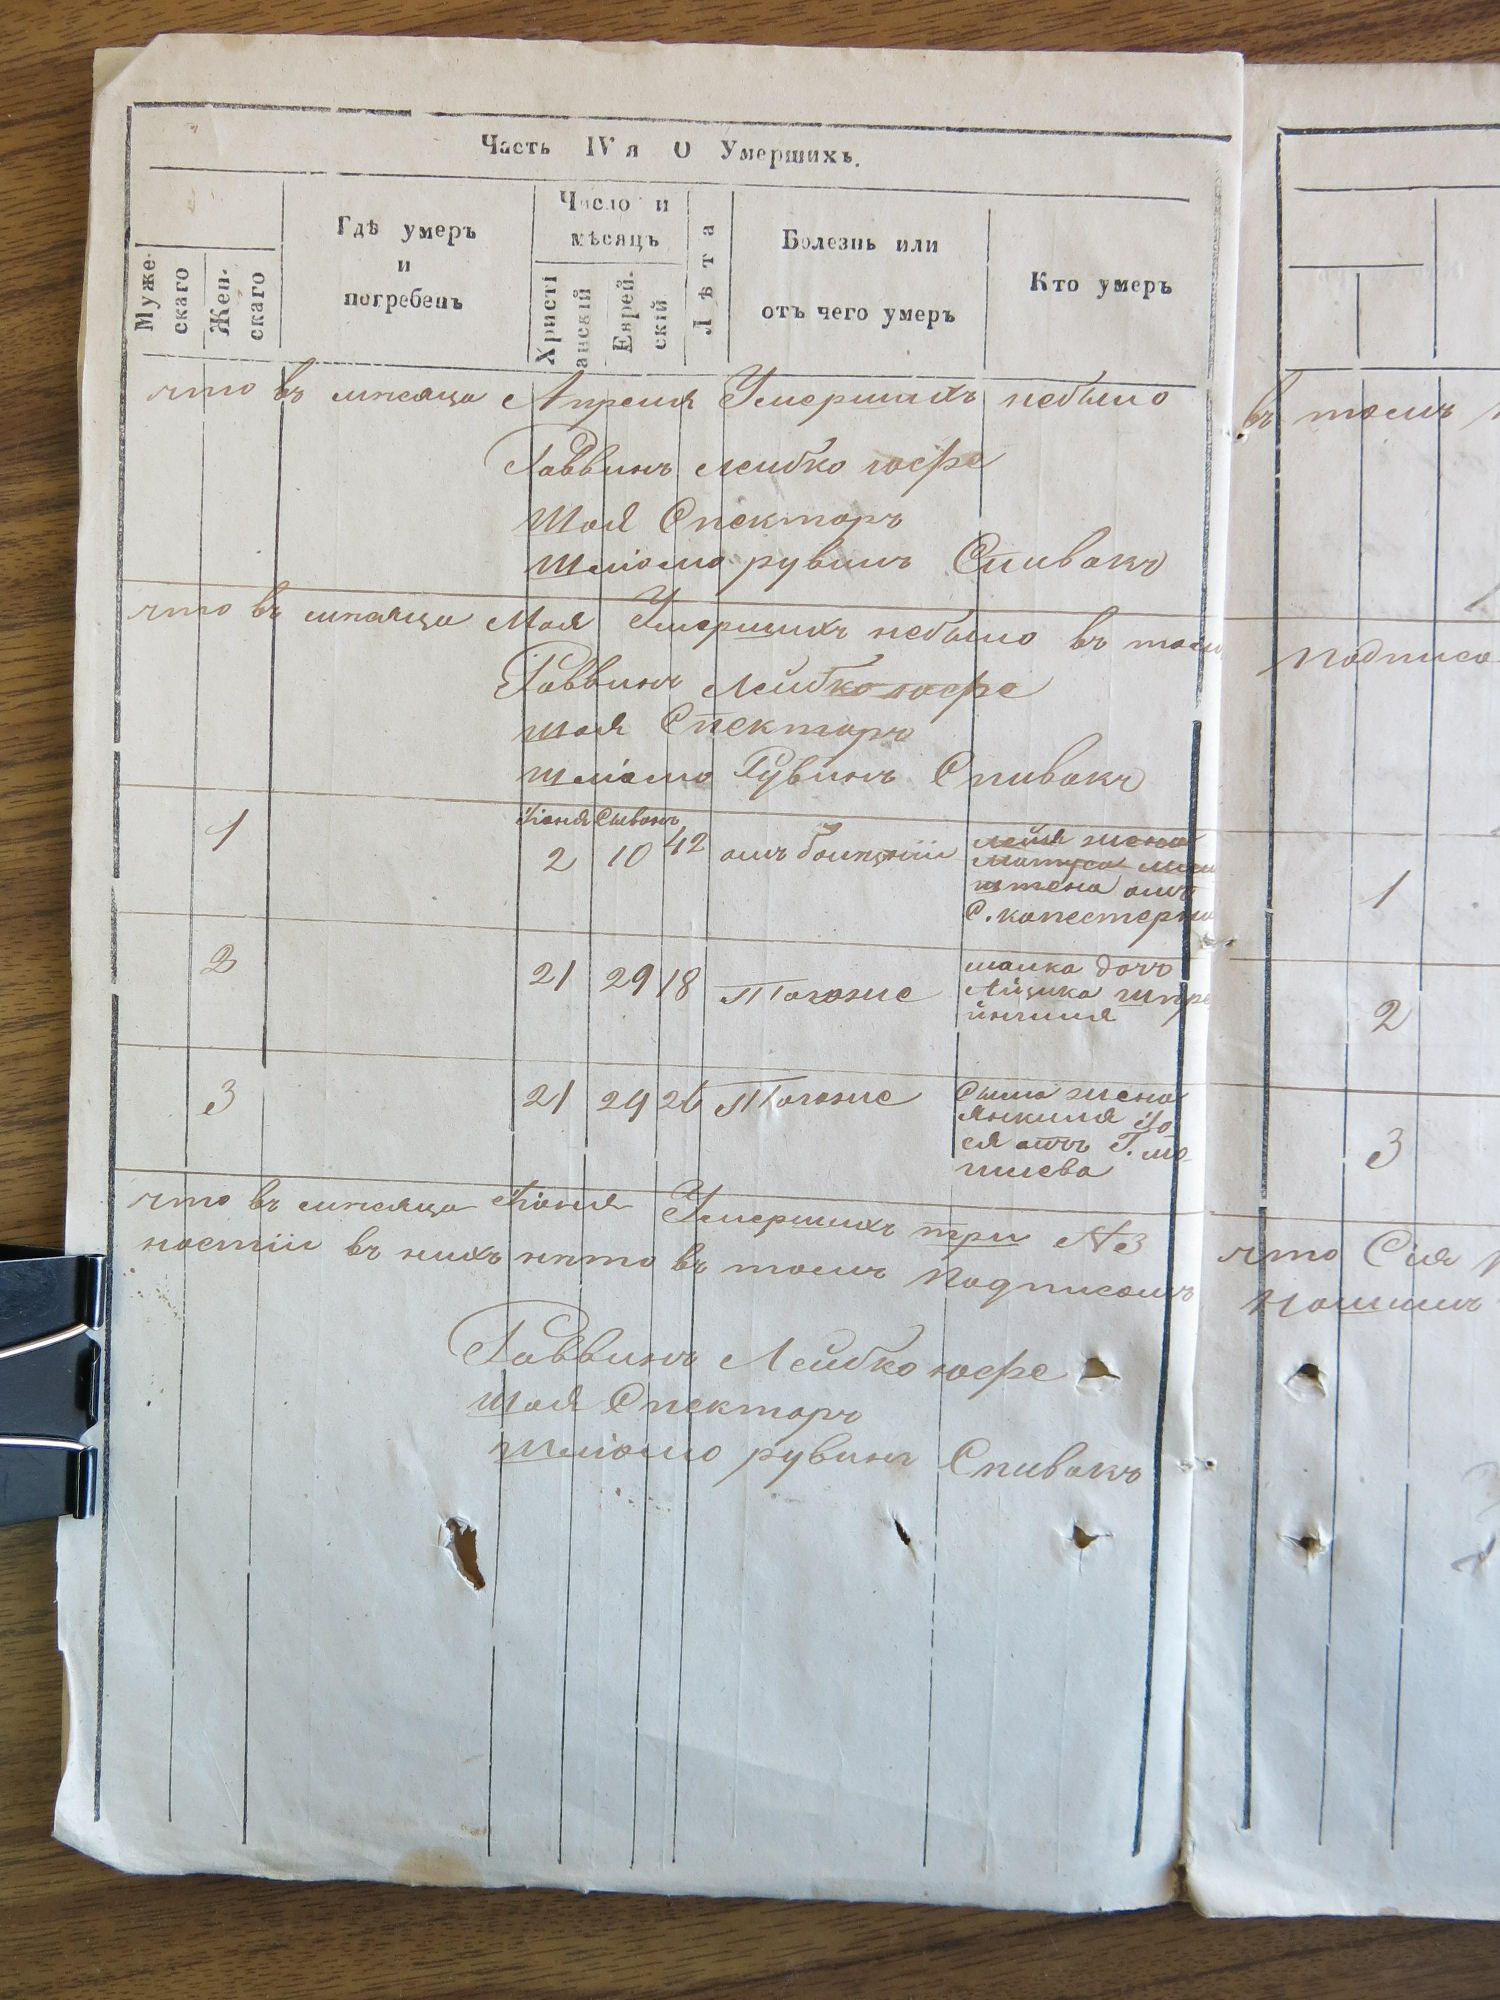 Часть IVя О Умершихъ.
Муже-
скаго
Жен-
скаго
Гдѣ умеръ
и
погребенъ
Число и
мѣсяцъ
Христі
анскій
Еврей-
скій
Лѣта
Болезнь или
отъ чего умеръ
Кто умеръ
что въ мѣсяца Апреля Умершихъ небыло
Раввинъ Лейбко юсфе
Шоя Спекторъ
Шліомо рувинъ Спивакъ
что въ мѣсяца Мая Умершихъ небыло въ томъ
Раввинъ Лейбко юсфе
Шоя Спекторъ
Шліомо Рувинъ Спивакъ
Іюня Сиванъ
1 2 10 42 отъ
лейя жена
штена отъ
2 21 29 18 Тоюже
дочъ
Айзика
3 21 29 26 Тоюже
жена
Янкиля
ся отъ Г. мо
гилева
что въ мѣсяца Іюня Умершихъ три №3
ностіи въ нихъ нѣто въ томъ подписомъ
Раввинъ Лейбко юсфе
Шоя Спекторъ
Шліомо рувинъ Спивакъ
въ томъ
подписо
1
2
3
что Сія
Нашимъ